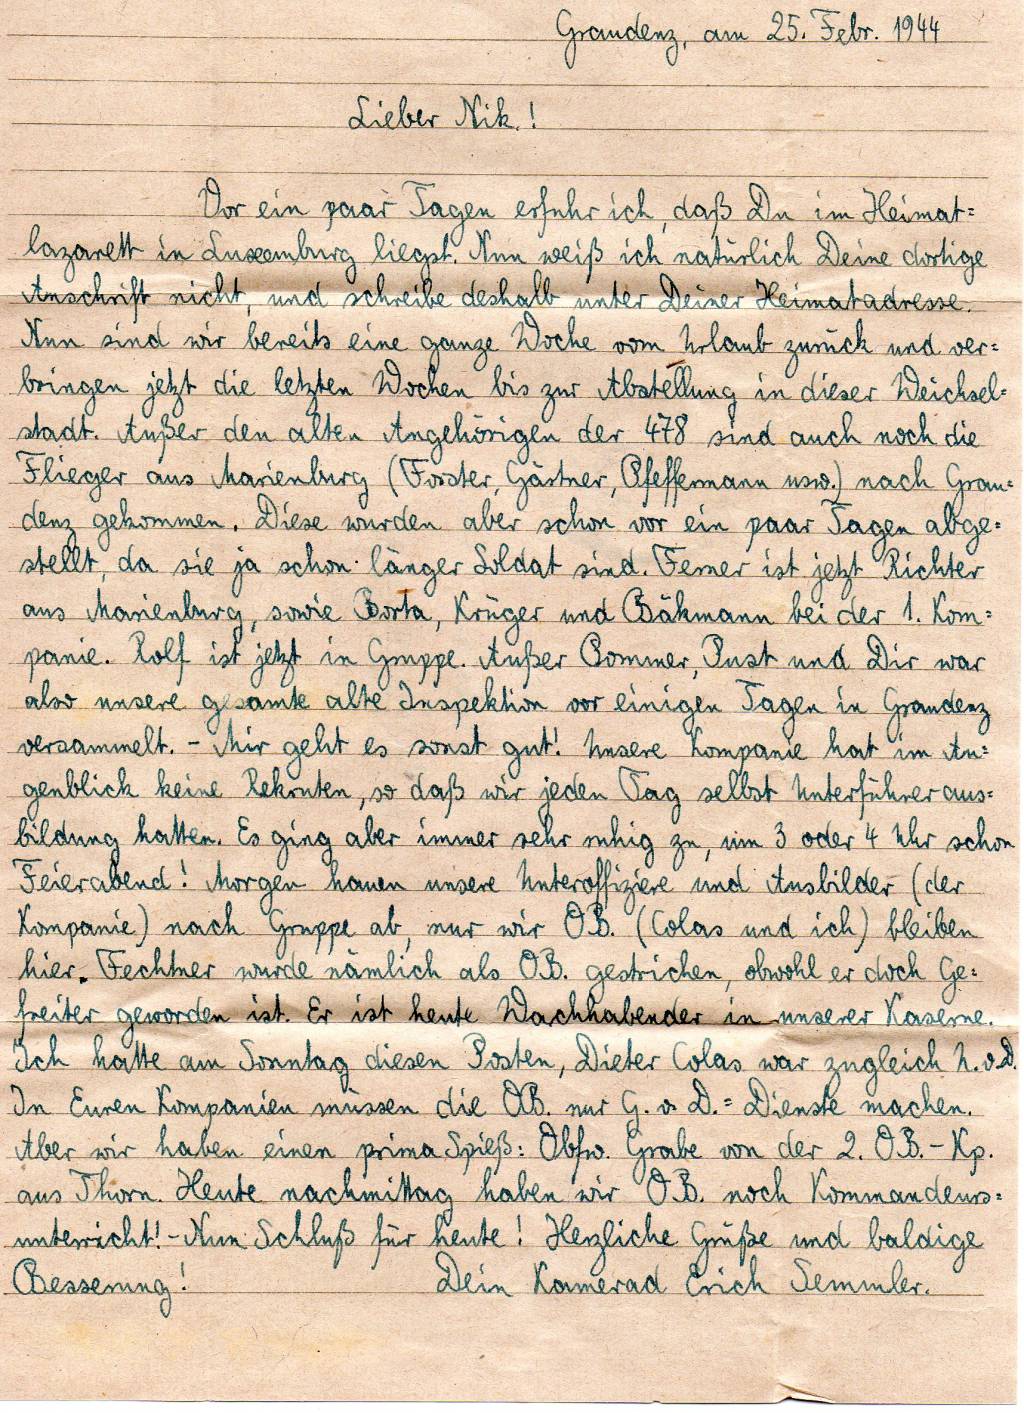 Graudenz, am 25. Febr. 1944
Lieber Nik.!
Vor ein paar Tagen erfuhr ich, daß Du im Heimat=
lazarett in Luxemburg liegst. Nun weiß ich natürlich Deine dortige
Anschrift nicht, und schreibe deshalb unter Deiner Heimatadresse.
Nun sind wir bereits eine ganze Woche vom Urlaub zurück und ver=
bringen jetzt die letzten Wochen bis zur Abstellung in dieser Weichsel=
stadt. Außer den alten Angehörigen der 478 sind auch noch die
Flieger aus Marienburg (Forster, Gärtner, Pfeffermann usw.) nach Grau=
denz gekommen. Diese wurden aber schon vor ein paar Tagen abge=
stellt, da sie ja schon länger Soldat sind. Ferner ist jetzt Richter
aus Marienburg, sowie Borta, Krüger und Bäkmann bei der 1. Kom=
panie. Rolf ist jetzt in Gruppe. Außer Pommer, Pust und Dir war
also unsere gesamte alte Inspektion vor einigen Tagen in Graudenz
versammelt. - Mir geht es sonst gut! Unsere Kompanie hat im Au=
genblick keine Rekruten, so daß wir jeden Tag selbst Unterführeraus=
bildung hatten. Es ging aber immer sehr ruhig zu, um 3 oder 4 Uhr schon
Feierabend! Morgen hauen unsere Unteroffiziere und Ausbilder (der
Kompanie) nach Gruppe ab, nur wir O.B. (Colas und ich) bleiben
hier. Fechtner wurde nämlich als O.B. gestrichen, obwohl er doch Ge=
freiter geworden ist. Er ist heute Wachhabender in unserer Kaserne.
Ich hatte am Sonntag diesen Posten, Dieter Colas war zugleich U.v.D.
In Euren Kompanien müssen die O.B. nur G. v. D.= Dienste machen.
Aber wir haben einen prima Spieß: Obfw. Grabe von der 2. O.B.-Kp.
aus Thorn. Heute nachmittag haben wir O.B. noch Kommandeurs=
unterricht! - Nun Schluß für heute! Herzliche Grüße und baldige
Besserung! Dein Kamerad Erich Semmler.